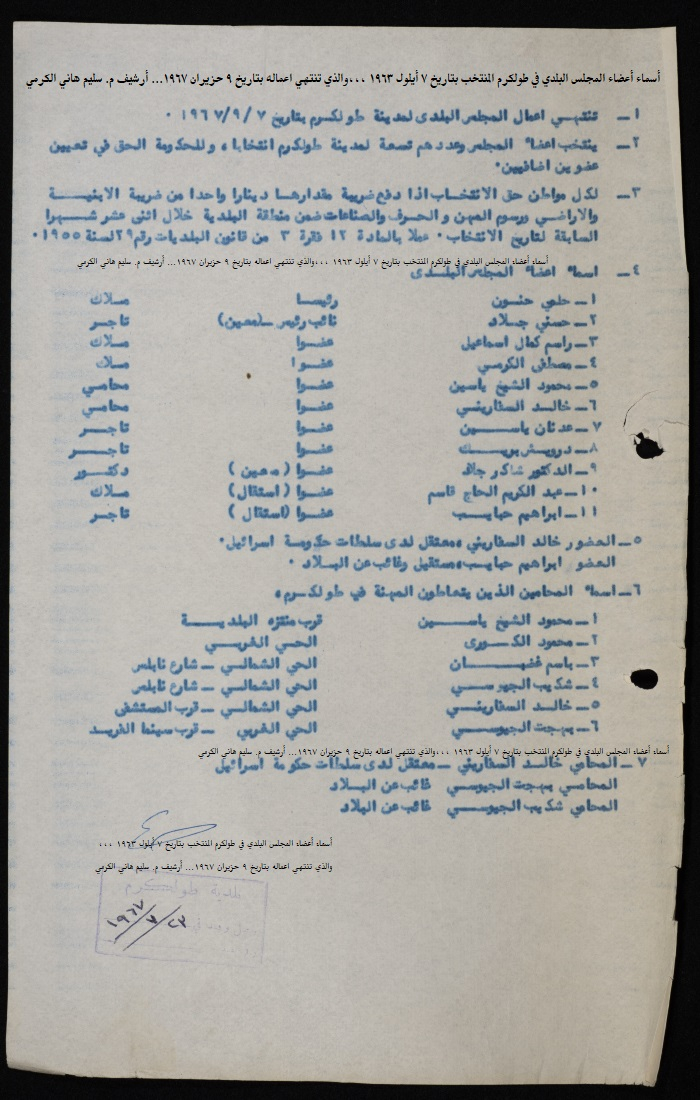 أسماء أعضاء المجلس البلدي في طولكرم المنتخب بتاريخ ٧ أيلول ١٩٦٣ ،،،والذي تنتهي اعماله بتاريخ ٩ حزيران ١٩٦٧... أرشيف م. سليم هاني الكرمي
١ــ تنتهي اعمال المجلس البلدى لمدينة طولكرم بتاريخ ١٩٦٧/٩/٧ ٠
٢ــ ينتخب اعضاء المجلس وعددهم تسعة لمدينة طولكرم انتخابا ، وللحكومة الحق في تعيين
عضوين اضافيين٠
٣ــ لكل مواطن حق الانتخاب اذا دفع ضريبة مقدارها دينارا واحدا من ضريبة الابنية
والاراضي ورسوم المهن والحرف والصناعات ضمن منطقة البلدية خلال اثنى عشر شهرا
السابقة لتاريخ الانتخاب٠ عملا بالمادة ١٢ فقرة ٣ من قانون البلديات رقم ٢٩ لسنة ١٩٥٥٠
أسماء أعضاء المجلس البلدي في طولكرم المنتخب بتاريخ ٧ أيلول ١٩٦٣ ،،،والذي تنتهي اعماله بتاريخ ٩ حزيران ١٩٦٧... أرشيف م. سليم هاني الكرمي
٤ــ اسماء اعضاء المجلس البلدى
١ــ حلمي حنون رئيسا ملاك
٢ــ حسني جلاد نائب رئيس ــ(معين) تاجر
٣ــ راسم كمال اسماعيل عضوا ملاك
٤ــ مصطفى الكرمي عضوا ملاك
٥ــ محمود الشيخ ياسين عضوا محامي
٦ــ خالد السفاريني عضوا محامي
٧ــ عدنان ياسين عضوا تاجر
٨ــ درويش بريك عضوا تاجر
٩ــ الدكتور شاكر جلاد عضوا ( معين ) دكتور
١٠ــ عبد الكريم الحاج قاسم عضوا (استقال) ملاك
١١ــ ابراهيم حبايب عضوا (استقال ) تاجر
٥ــ العضور خالد السفاريني ، معتقل لدى سلطات حكومة اسرائيل٠
العضور ابراهيم حبايب ، مستقيل وغائب عن البلاد ٠
٦ــ اسماء المحامين الذين يتعاطون المهنة في طولكرم،
١ــ محمود الشيخ ياسين قرب منتزه البلدية
٢ــ محمود الكورى الحي الغربي
٣ــ باسم غضبان الحي الشمالي ــ شارع نابلس
٤ــ شكيب الجيوسي الحي الشمالي ــ شارع نابلس
٥ــ خالد السفاريني الحي الشمالي ــ قرب المستشفى
٦ــ بهجت الجيوسي الحي الغربي ــ قرب سينما الفريد
أسماء أعضاء المجلس البلدي في طولكرم المنتخب بتاريخ ٧ أيلول ١٩٦٣ ،،،والذي تنتهي اعماله بتاريخ ٩ حزيران ١٩٦٧... أرشيف م. سليم هاني الكرمي
٧ ــ المحامي خالد السفاريني ــ معتقل لدى سلطات حكومة اسرائيل
المحامي بهجت الجيوسي غائب عن البلاد
المحامي شكيب الجيوسي غائب عن البلاد
أسماء أعضاء المجلس البلدي في طولكرم المنتخب بتاريخ ٧ أيلول ١٩٦٣ ،،،
والذي تنتهي اعماله بتاريخ ٩ حزيران ١٩٦٧... أرشيف م. سليم هاني الكرمي
بلدية طولكرم
٢٣/٧/١٩٦٧